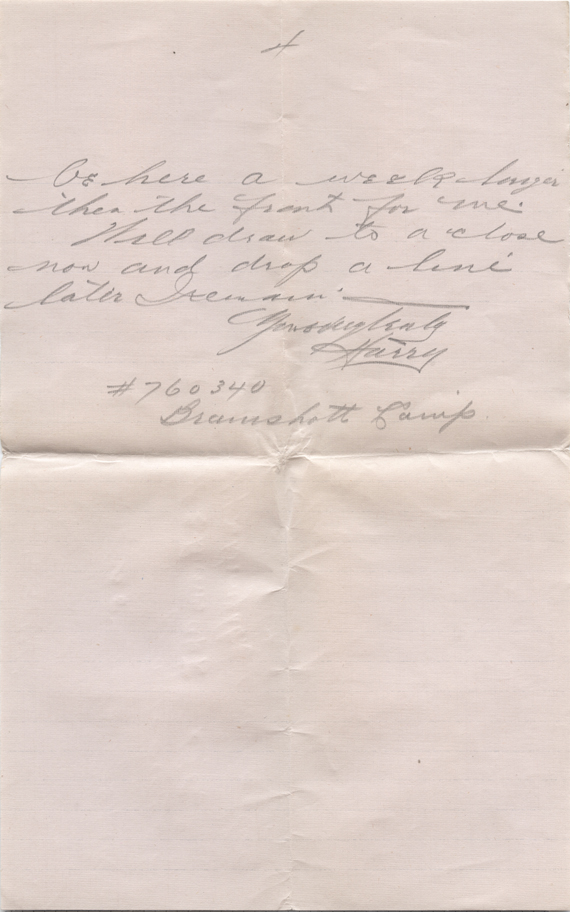 4
be here a week longer
then the front for me.
Well draw to a close
now and drop a line
later I remain
Yours very truly
Harry
#760340
Bramshott Camp.